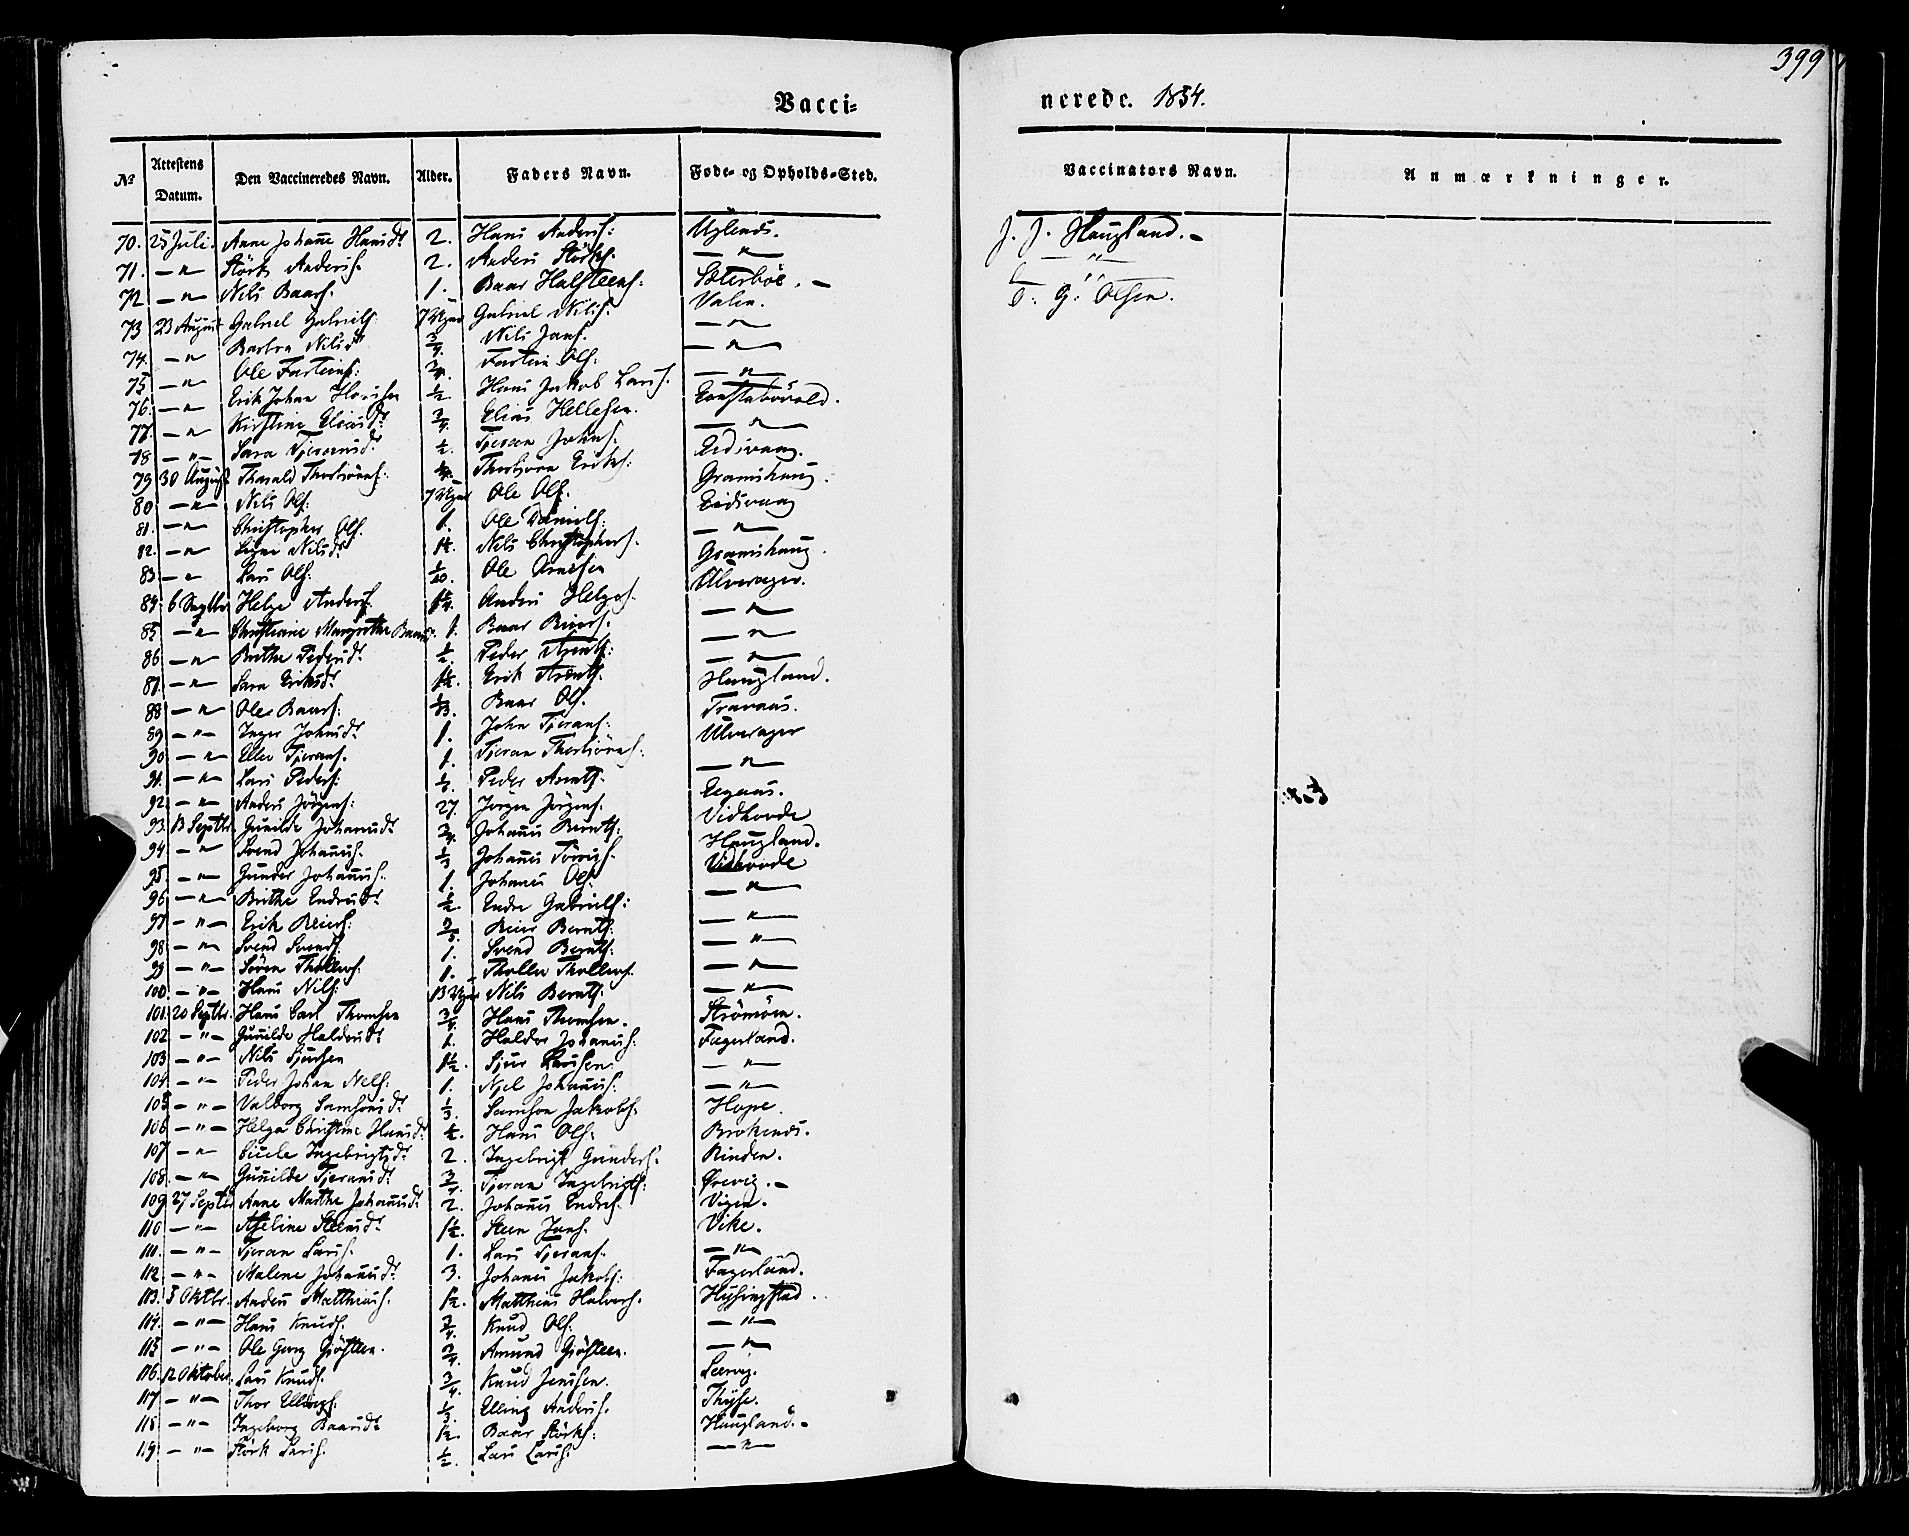 399
Vacci= nerede. 1834.
№ Attestens Datum. Den Vaccineredes Navn. Alder. Faders Navn. Føde- og Opholds-Sted. Vaccinators Navn. Anmærkninger.
70. 25 Juli. Anne Johanne Hansdr 2. Hans Anders: J. J. Haugland.
71. — " — Störk Anders. 2. Anders Störks. — " — — " —
72 — " — Nils Baars. 1. Baar Halsteens: Sæterböe. G. Olsen.
73 23 August Gabriel Gabriels 7 Uger Gabriel Nils. Valen.
74. — " — Barbra Nilsdr 3/4. Nils Jans. — " —
75 — " — Ole Farteins: 3/4. Fartein Ols: — " —
76. — " — Erik Johan 1/2. Hans Jakob Lars. — " —
77. — " — Kirstine Eliasdr 3/4. Elias Hellesen.
78 — " — Sara Tjeransdr 1/2. Tjeran Johns. — " —
79 30 August Tharald Thorbjörns. Thorbjörn Eriks: Eidsvaag.
80 — " — Nils Ols. 7 Uger Ole Ols. Gramshaug.
81. — " — Christopher Ols. 1. Ole Daniels: Eidsvaag
82. — " — Nilsdr Nils Christophers. — " —
83 — " — Lars Ols. 1/20. Ole Gramshaug.
84 6 Septbr Helge Anders. Anders Helges. Ulverager.
85 — " — Christiane Margrethe 1. Baar — " —
86 — " — Brithe Pedersdr 1/2. Peder Arents: — " —
87. — " — Sara Eriksdr 1 1/2. Erik Arents. — " —
88 — " — Ole Baars: Baar Ols. Haugland.
89 — " — Inger Johnsdr 1. John Tjerans: Travaas.
90 — " — Tjerans. 1. Tjeran Thorbjörns: Ulverager
91. — " — Lars Peders: Peder Arents. — " —
92 — " — Anders Jörgens: 27. Jörgen Jörgens.
93. 13 Septbr. Gunilde Johannesdr 3/4. Johannes Bernts: Vidhovde
94 — " — Svend Johannes. 1/3 Johannes Haugland.
95. — " — Gunder Johannes. 1. Johannes Ols: Vidhovde
96 — " — Brithe Endresdr 1/2. Endre Gabriels: — " —
97 — " — Erik Reiers: Reier Bernts: — " —
98 — " — Svend Svends 1. Svend Bernts: — " —
99 — " — Sören Thollers. 1. Tholler Thollers. — " —
100. — " — Hans Nils: 13 Uger Nils Bernts: — " —
101. 20 Septbr. Hans Carl Thomsen 3/4. Hans Thomsen. Strömöen.
102 — " — Gunilde Haldorsdr 1. Haldor Johannes: Fagerland.
103 — " — Nils Sjursen 1 1/2. Sjur Larsen. — " —
104 — " — Peder Johan Nels: 1. Njel Johannes: — " —
105 — " — Valborg Samsonsdr 1/3. Samson Jakobs. Hope.
106 — " — Helga Christine Hansdr 1/2. Hans Ols:
107 — " — Ingebrigtsdr 2. Ingebrigt Gunders. Rinden.
108. — " — Gunilde Tjeransdr 3/4. Tjeran Ingebrigts: Örevig.
109 27 Septbr Anne Marthe Johannesdr 2. Johannes Endres. Vigen.
110 — " — Steensdr 1 1/2. Steen Jans. Vike.
111. — " — Tjeran Lars. 1. Lars Tjerans. — " —
112 — " — Malene Johannesdr 3. Johannes Jakobs: Fagerland.
113. 5 Oktbr. Anders Matthias. 1 1/2. Matthias Halvors. Hysingstad.
114. — " — Hans Knuds. 3/4. Knud Ols. — " —
115 — " — Ole Georg Gjösteen. 3/4. Amund Gjösteen. — " —
116. 12 Oktober. Lars Knuds. 3/4. Knud Jensen. Leervig.
117 — " — Thor Ellings. 1/3. Elling Anders.
118 — " — Ingeborg Baarsdr 1 1/2. Baar Störks: Haugland.
119 — " — Störk Lars. 1/2. Lars Lars: — " —